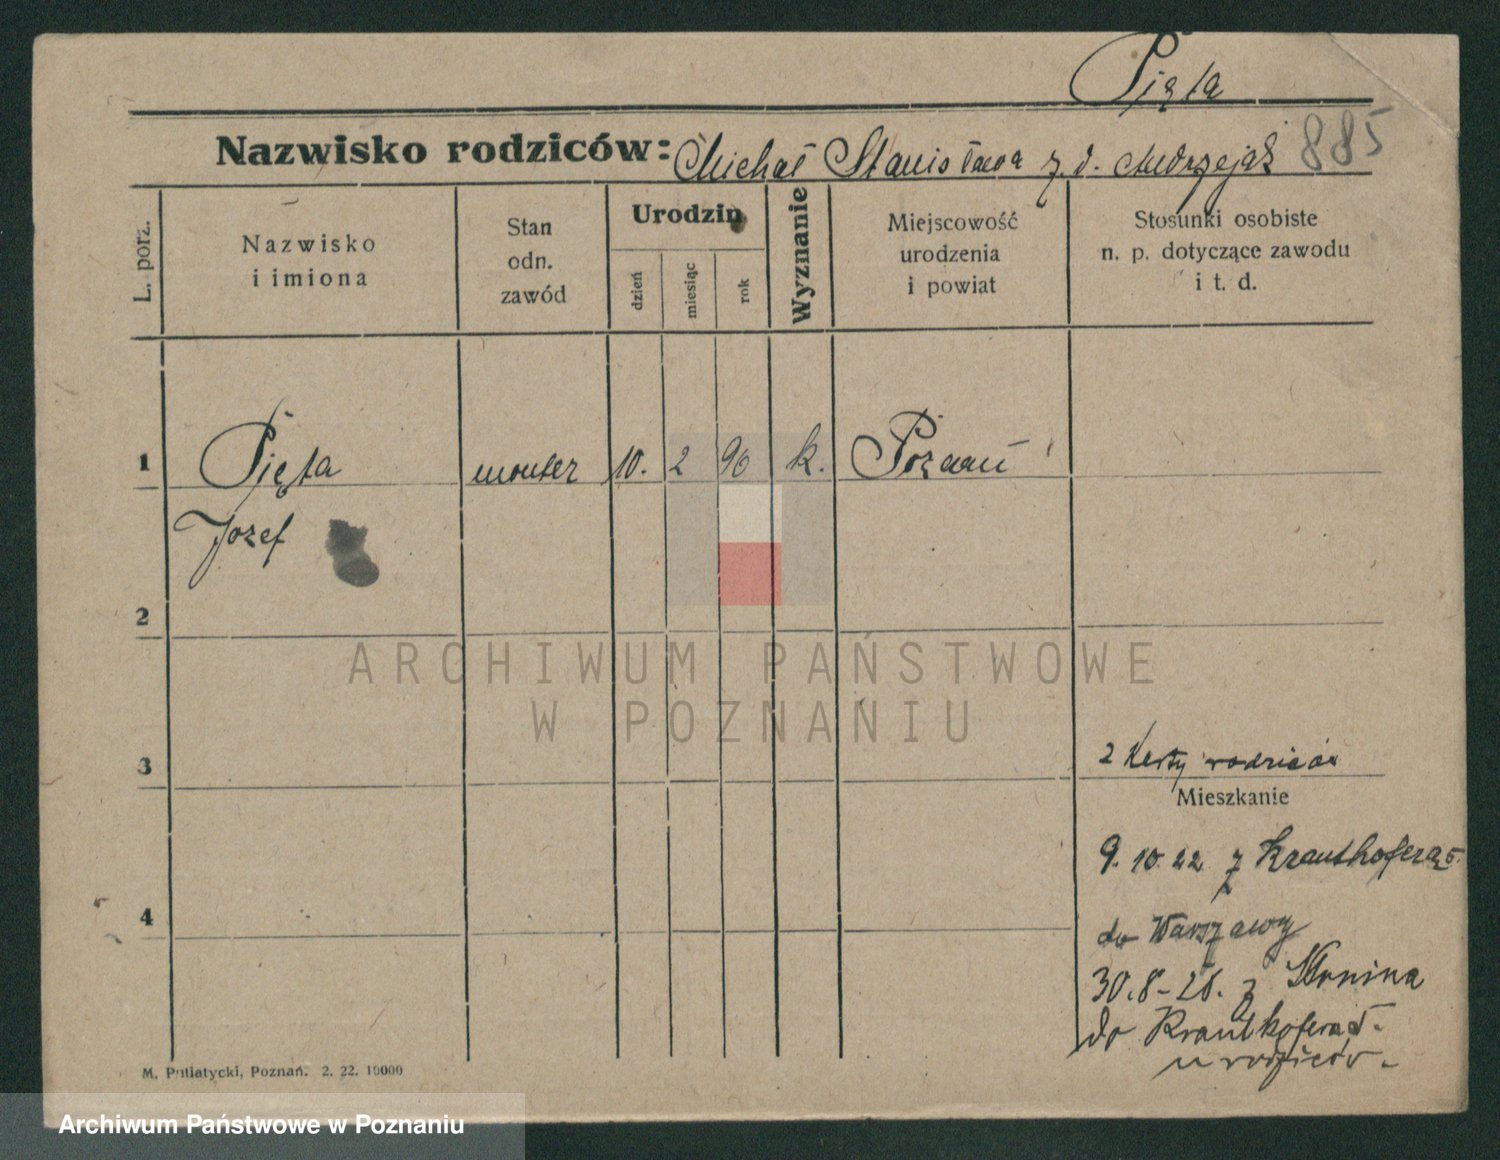 Pięta
Nazwisko rodziców: Michał Stanisława z. d. Andrzejak 885
L. porz.
Nazwisko
i imiona
Stan
odn.
zawód
Urodzin
dzień
miesiąc
rok
Wyznanie
Miejscowość
urodzenia
i powiat
Stosunki osobiste
n. p. dotyczące zawodu
i t. d.
1 Pięta monter 10. 2 90 k. Poznań
Józef
2
ARCHIWUM PAŃSTWOWE
W POZNANIU
3 2 Karty rodziców
Mieszkanie
9.10.22 z Krauthofera 5.
4
do Warszawy
30.8-26. z Słonina
do Krauthofera 5.
u rodziców.
M. Putiatycki, Poznań. 2. 22. 10000
Archiwum Państwowe w Poznaniu